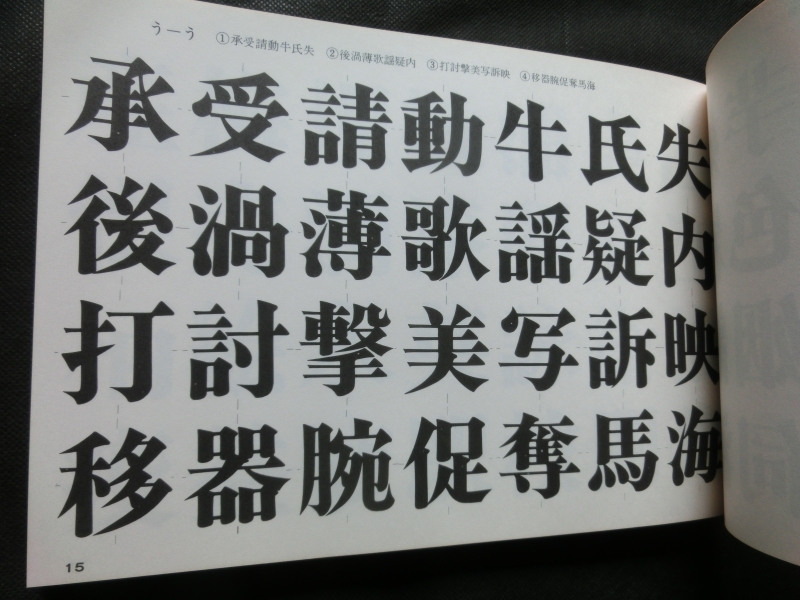 うーう ①承受請動牛氏失 ②後渦薄歌謡疑内 ③打討撃美写訴映 ④移器腕促奪馬海
承受請動牛氏失
後渦薄歌謡疑内
打討撃美写訴映
移器腕促奪馬海
15